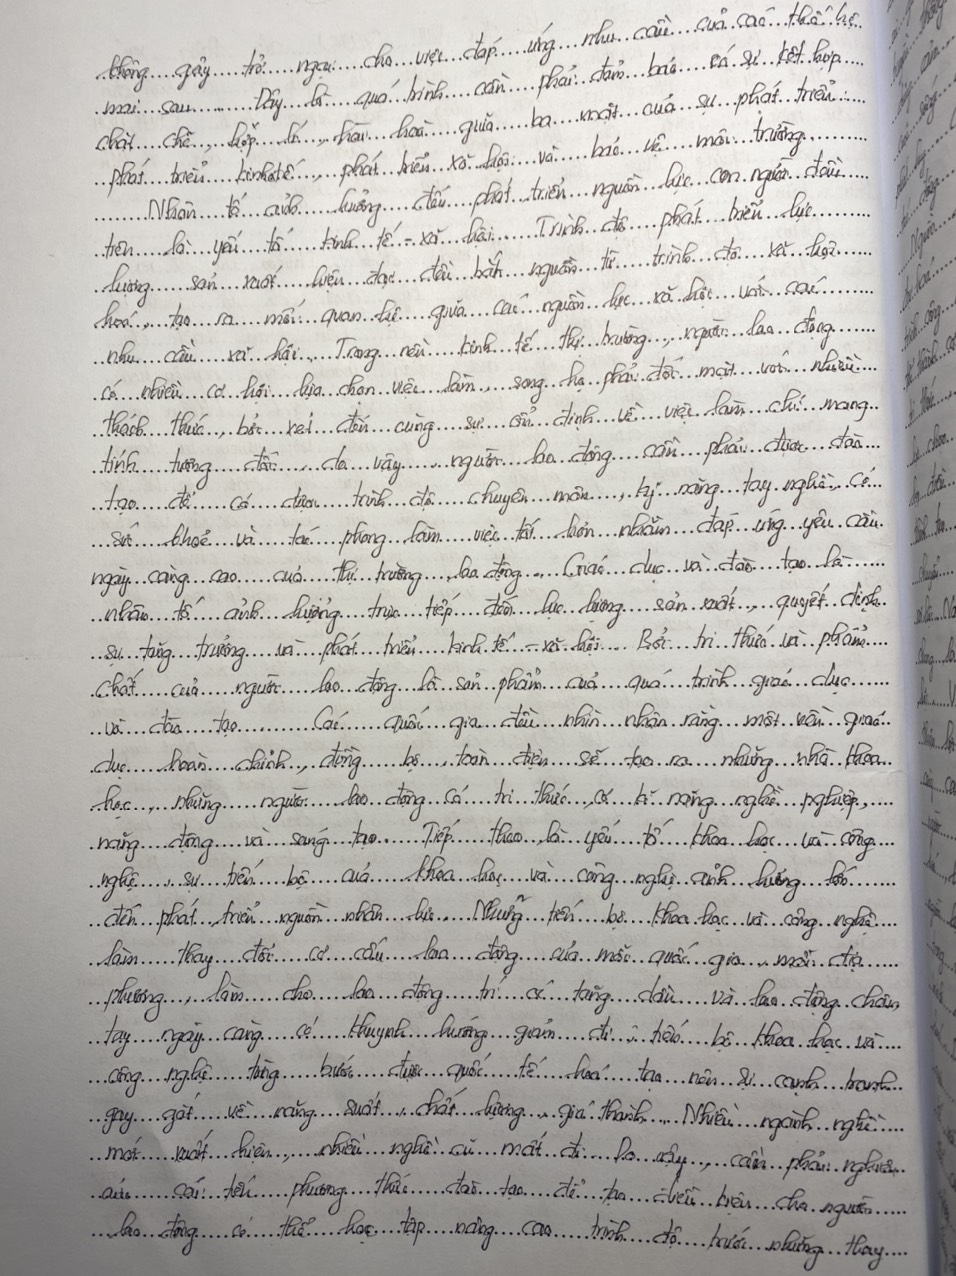 không gây trở ngại cho việc đáp ứng nhu cầu của các thế hệ
mai sau. Đây là quá trình cần phải đảm bảo có sự kết hợp
chặt chẽ, hợp lí, hài hoà giữa ba mặt của sự phát triển:
phát triển kinh tế, phát triển xã hội và bảo vệ môi trường.
Nhân tố ảnh hưởng đến phát triển nguồn lực con người đầu
tiên là yếu tố kinh tế - xã hội. Trình độ phát triển lực
lượng sản xuất hiện đại đều bắt nguồn từ trình độ xã hội
hoá, tạo ra mối quan hệ giữa các nguồn lực xã hội với các
nhu cầu xã hội. Trong nền kinh tế thị trường, người lao động
có nhiều cơ hội lựa chọn việc làm, song họ phải đối mặt với nhiều
thách thức, bởi xét đến cùng sự ổn định về việc làm chỉ mang
tính tương đối, do vậy, người lao động cần phải được đào
tạo để có được trình độ chuyên môn, kỹ năng tay nghề, có
sức khoẻ và tác phong làm việc tốt hơn nhằm đáp ứng yêu cầu
ngày càng cao của thị trường lao động. Giáo dục và đào tạo là
nhân tố ảnh hưởng trực tiếp đến lực lượng sản xuất, quyết định
sự tăng trưởng và phát triển kinh tế - xã hội. Bởi tri thức và phẩm
chất của người lao động là sản phẩm của quá trình giáo dục
và đào tạo. Các quốc gia đều nhìn nhận rằng một nền giáo
dục hoàn chỉnh, đồng bộ, toàn diện sẽ tạo ra những nhà khoa
học, những người lao động có tri thức, có kĩ năng nghề nghiệp,
năng động và sáng tạo. Tiếp theo là yếu tố khoa học và công
nghệ, sự tiến bộ của khoa học và công nghệ ảnh hưởng lớn
đến phát triển nguồn nhân lực. Những tiến bộ khoa học và công nghệ
làm thay đổi cơ cấu lao động của mỗi quốc gia, mỗi địa
phương, làm cho lao động trí óc tăng dần và lao động chân
tay ngày càng có khuynh hướng giảm đi; tiến bộ khoa học và
công nghệ từng bước được quốc tế hoá tạo nên sự cạnh tranh
gay gắt về năng suất, chất lượng, giá thành. Nhiều ngành nghề
mới xuất hiện, nhiều nghề cũ mất đi. Do vậy, cần phải nghiên
cứu cải tiến phương thức đào tạo để tạo điều kiện cho người
lao động có thể học tập nâng cao trình độ trước những thay